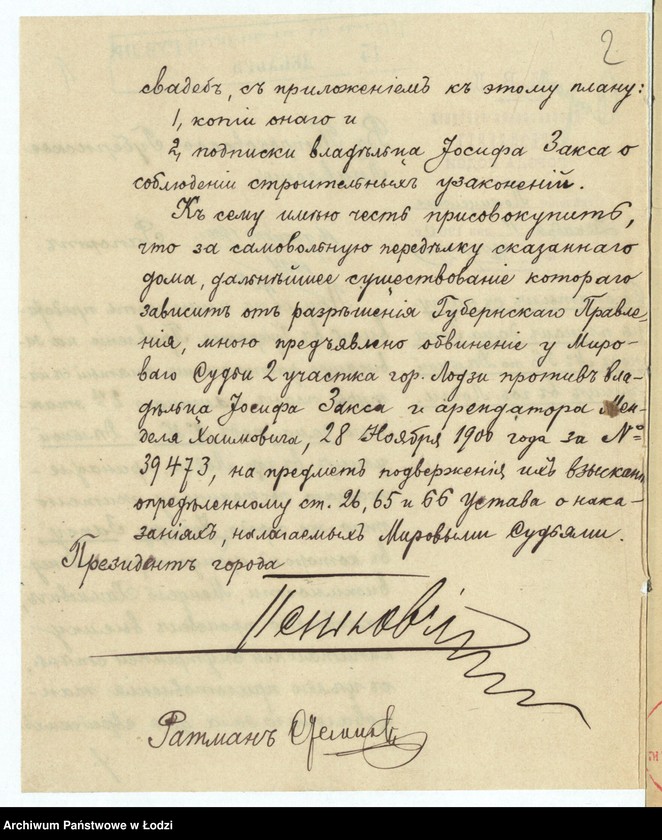 2
свадебъ, съ приложеніемъ къ этому плану:
1, копіи онаго и
2, подписки владѣльца Іосифа Закса о
соблюденіи строительныхъ узаконеній.
Къ сему имѣю честь присовокупить,
что за самовольную передѣлку сказаннаго
дома, дальнѣйшее существованіе котораго
зависитъ отъ разрѣшенія Губернскаго Правле-
нія, мною предъявлено обвиненіе у Миро-
ваго Судьи 2 участка гор. Лодзи противъ вла-
дѣльца Іосифа Закса и арендатора Мен-
деля Хаимовича, 28 Ноября 1900 года за №
39473, на предметъ подверженія ихъ взыскан.
опредѣленному ст. 26, 65 и 66 Устава о нака-
заніяхъ, налагаемыхъ Мировыми Судьями.
Президентъ города
Пеньковскій
Ратманъ
Archiwum Państwowe w Łodzi